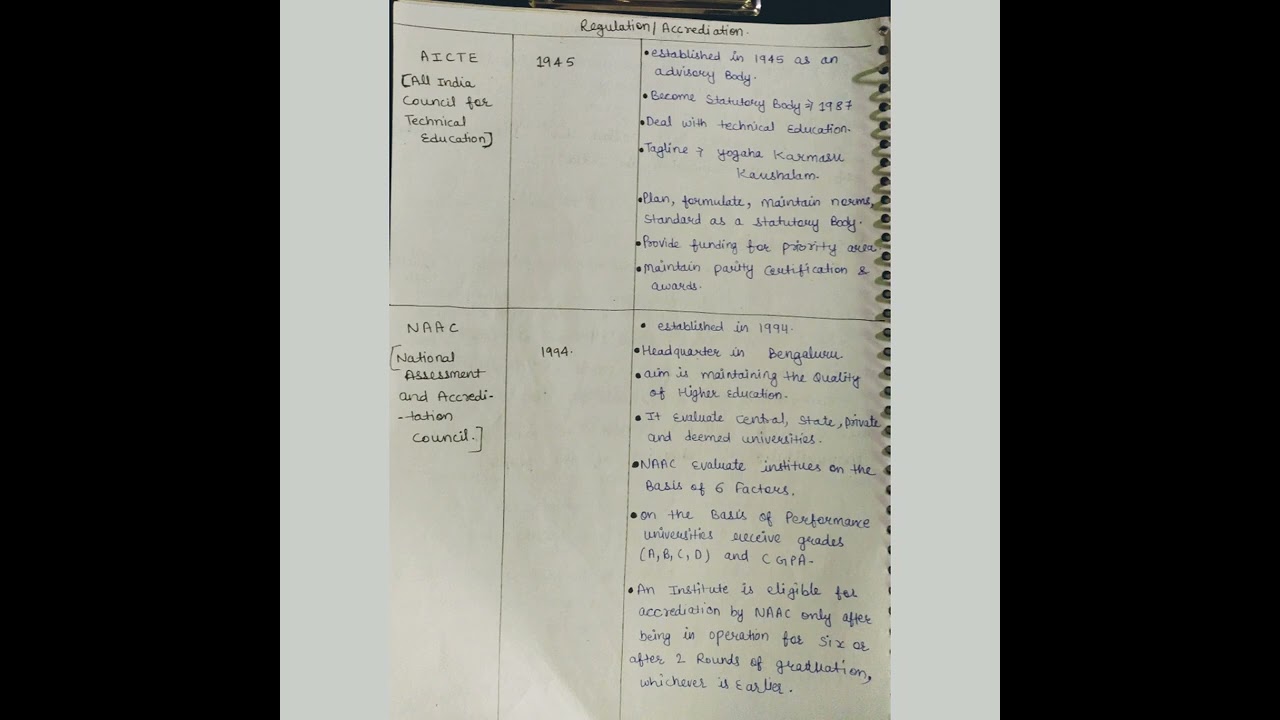 Regulation/Accrediation.
AICTE
[All India
Council for
Technical
Education]
1945
• established in 1945 as an
advisory Body.
• Become Statutory Body → 1987
• Deal with technical Education.
• Tagline → yogaha Karmasu
Kaushalam.
• Plan, formulate, maintain norms,
Standard as a statutory Body.
• Provide funding for priority area.
• Maintain parity certification &
awards.
NAAC
[National
Assessment
and Accredi-
-tation
Council.]
1994.
• established in 1994.
• Headquarter in Bengaluru.
• aim is maintaining the Quality
of Higher Education.
• It Evaluate central, State, private
and deemed universities.
• NAAC Evaluate institues on the
Basis of 6 Factors.
• on the Basis of Performance
universities receive grades
(A, B, C, D) and CGPA.
• An Institute is eligible for
accrediation by NAAC only after
being in operation for Six or
after 2 Rounds of graduation,
whichever is Earlier.